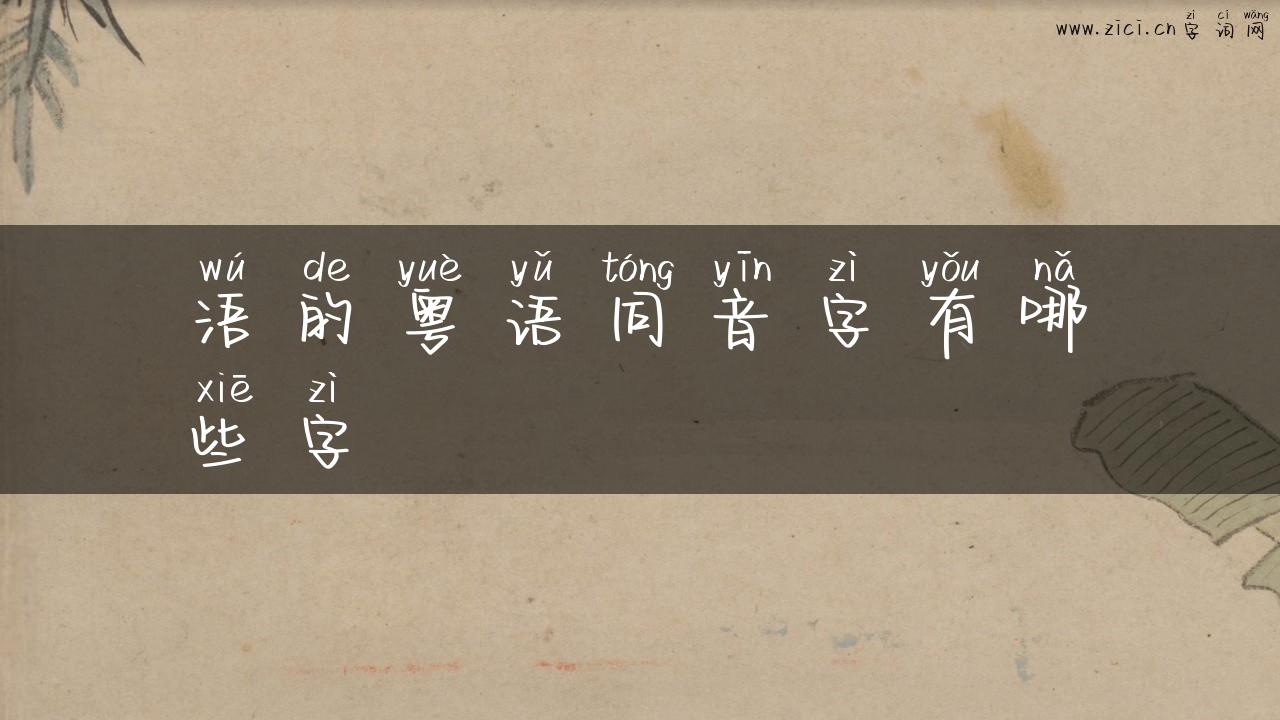 zì cí wǎng
www.zici.cn 字 词 网
wú de yuè yǔ tóng yīn zì yǒu nǎ
浯 的 粤 语 同 音 字 有 哪
xiē zì
些 字